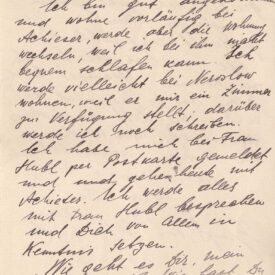 Ich bin gut angekommen
und wohne vorläufig bei
Achieser, werde aber die Wohnung
wechseln, weil ich bei ihm nicht
bequem schlafen kann. Ich
werde vielleicht bei
wohnen, weil er mir ein Zimmer
zur Verfügung stellt; darüber
werde ich noch schreiben.
Ich habe mich bei Frau
Hubl per Postkarte gemeldet
und und gehe heute mit
Achieser. Ich werde alles
mit Frau Hubl besprechen
und Dich von Allem in
Kenntnis setzen.
Wie geht es Dir, mein